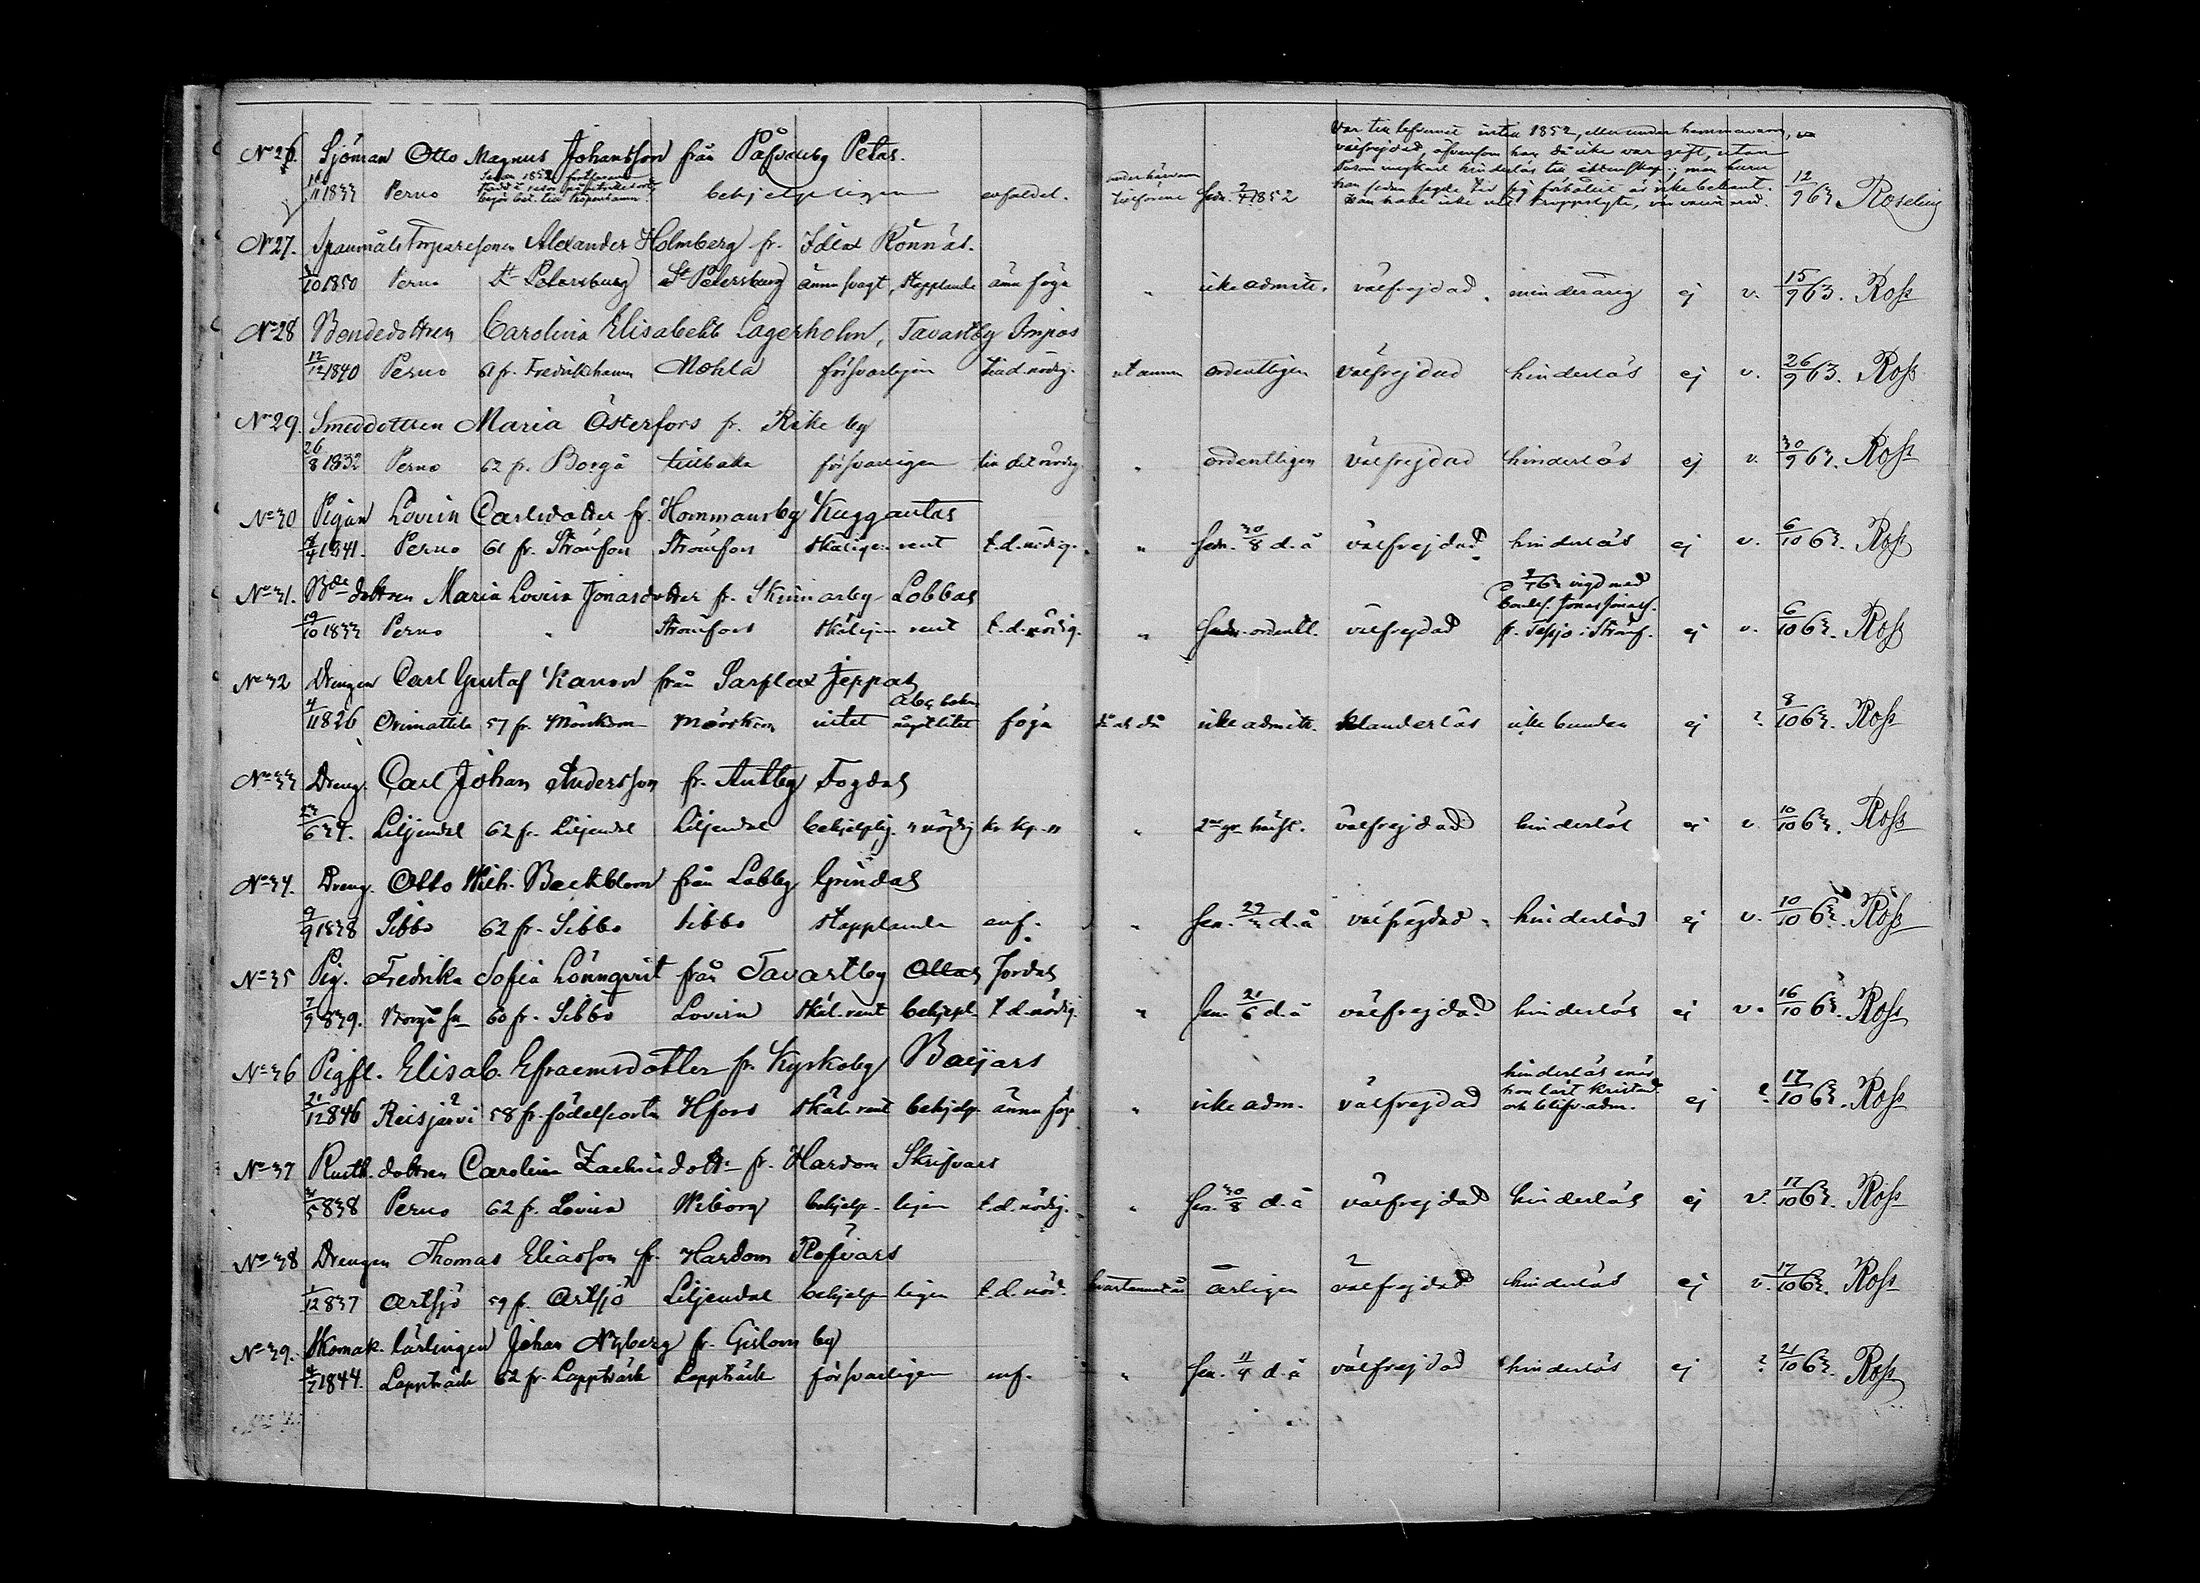 No 26. Sjöman Otto Magnus Johansson från Påfvalsby Petas.
Var till lefvernet intill 1852, eller under hemmavaron,
välfrejdad, äfvensom han då icke var gift, utan
hinderlös till äktenskap; men huru
han sedan sagde tid sig förhållit är icke bekant.
1833 Perno Sedan 1852 behjelpligen enfaldet. 1852 12/9 63 Roselius
No 27. Alexander Holmberg fr. Islax Rönnäs.
/10 1850 Perno St Petersburg St Petersburg ännu svagt, stapplande ännu föga " icke admitt. välfrejdad. minderårig ej v. 15/9 63. Ross
No 28 Bondedottren Carolina Elisabeth Lagerholm, Tavastby Impos
12/12 1840 Perno 61 fr. Fredrikshamn Mohla försvarligen till d. nödig. ordentligen välfrejdad hinderlös ej v. 26/9 63. Ross
No 29. Smeddottren Maria Österfors fr. Rike by
26/8 1832 Perno 62 fr. Borgå tillbaka försvarligen till det nödig. " ordentligen välfrejdad hinderlös ej v. 30/9 63. Ross
No 30 Pigan Lovisa Carlsdotter fr. Hommansby Kuggantas
1841. Perno 61 fr. Strömfors Strömfors skäligen rent t. d. nödig. " sen. 30/8 d. å välfrejdad hinderlös ej v. 6/10 63. Ross
No 31. Bde dottren Maria Lovisa Jonasdotter fr. Skinnarby Lobbas
63 vigd med
bondes. Jonas Jonass.
19/10 1833 Perno " Strömfors skäligen rent t. d. nödig. " ordentl. välfrejdad fr. Tesjo i Strömf. ej v. 6/10 63. Ross
No 32 Drengen Carl Gustaf Kanon från Sarflax Jeppas
Abc boken
4/11 826 Orimattila 57 fr. Mörskom Mörskom intet något litet föga då och då icke admitt. klanderlös icke bunden ej ? 8/10 63. Ross
No 33 Dreng. Carl Johan Andersson fr. Antby Fogdas
23/6 39. Liljendal 62 fr. Liljendal Liljendal behjelplig. " 2ne gr. välfrejdad hinderlös ej v. 10/10 63. Ross
No 34. Dreng. Otto Wilh. Backblom från Labby Grindas
9/9 1838 Sibbo 62 fr. Sibbo Sibbo stapplande enf. " sen. 29/3 d. å välfrejdad hinderlös ej v. 10/10 63. Ross
No 35 Pig. Fredrika Sofia Lönnqvist från Tavastby Ollas Jordas
7/9 839. Borgå sn 60 fr. Sibbo Lovisa skäl. rent behjepl. t d. nödig. " sen. 21/6 d. å välfrejdad hinderlös ej v. 16/10 63. Ross
No 36 Pigfl. Elisab. Efraemsdotter fr. Kyrkoby Baijars
hinderlös enär
hon läst kristend.
21/12 846 Reisjärvi 58 fr. födelseorten Hfors skäl. rent behjelp. ännu föga " icke adm. välfrejdad och blifv. adm. ej ? 17/10 63. Ross
No 37 Rusth. dottren Carolina Zachrisdottr fr. Hardom Skrifvars
/5 838 Perno 62 fr. Lovisa Wiborg behjelpligen t. d. nödig. " sen. 30/8 d. å välfrejdad hinderlös ej v. 17/10 63. Ross
No 38 Drengen Thomas Eliasson fr. Hardom Rofvars
1/12 837 Artsjö 59 fr. Artsjö Liljendal behjelpligen t. d. nöd. hvartannat år årligen välfrejdad hinderlös ej v. 17/10 63. Ross
No 39. Skomak. lärlingen Johan Nyberg fr. Gislom by
1844. Lappträsk 62 fr. Lappträsk Lappträsk försvarligen enf. " sen. 11/4 d. å välfrejdad hinderlös ej ? 21/10 63. Ross